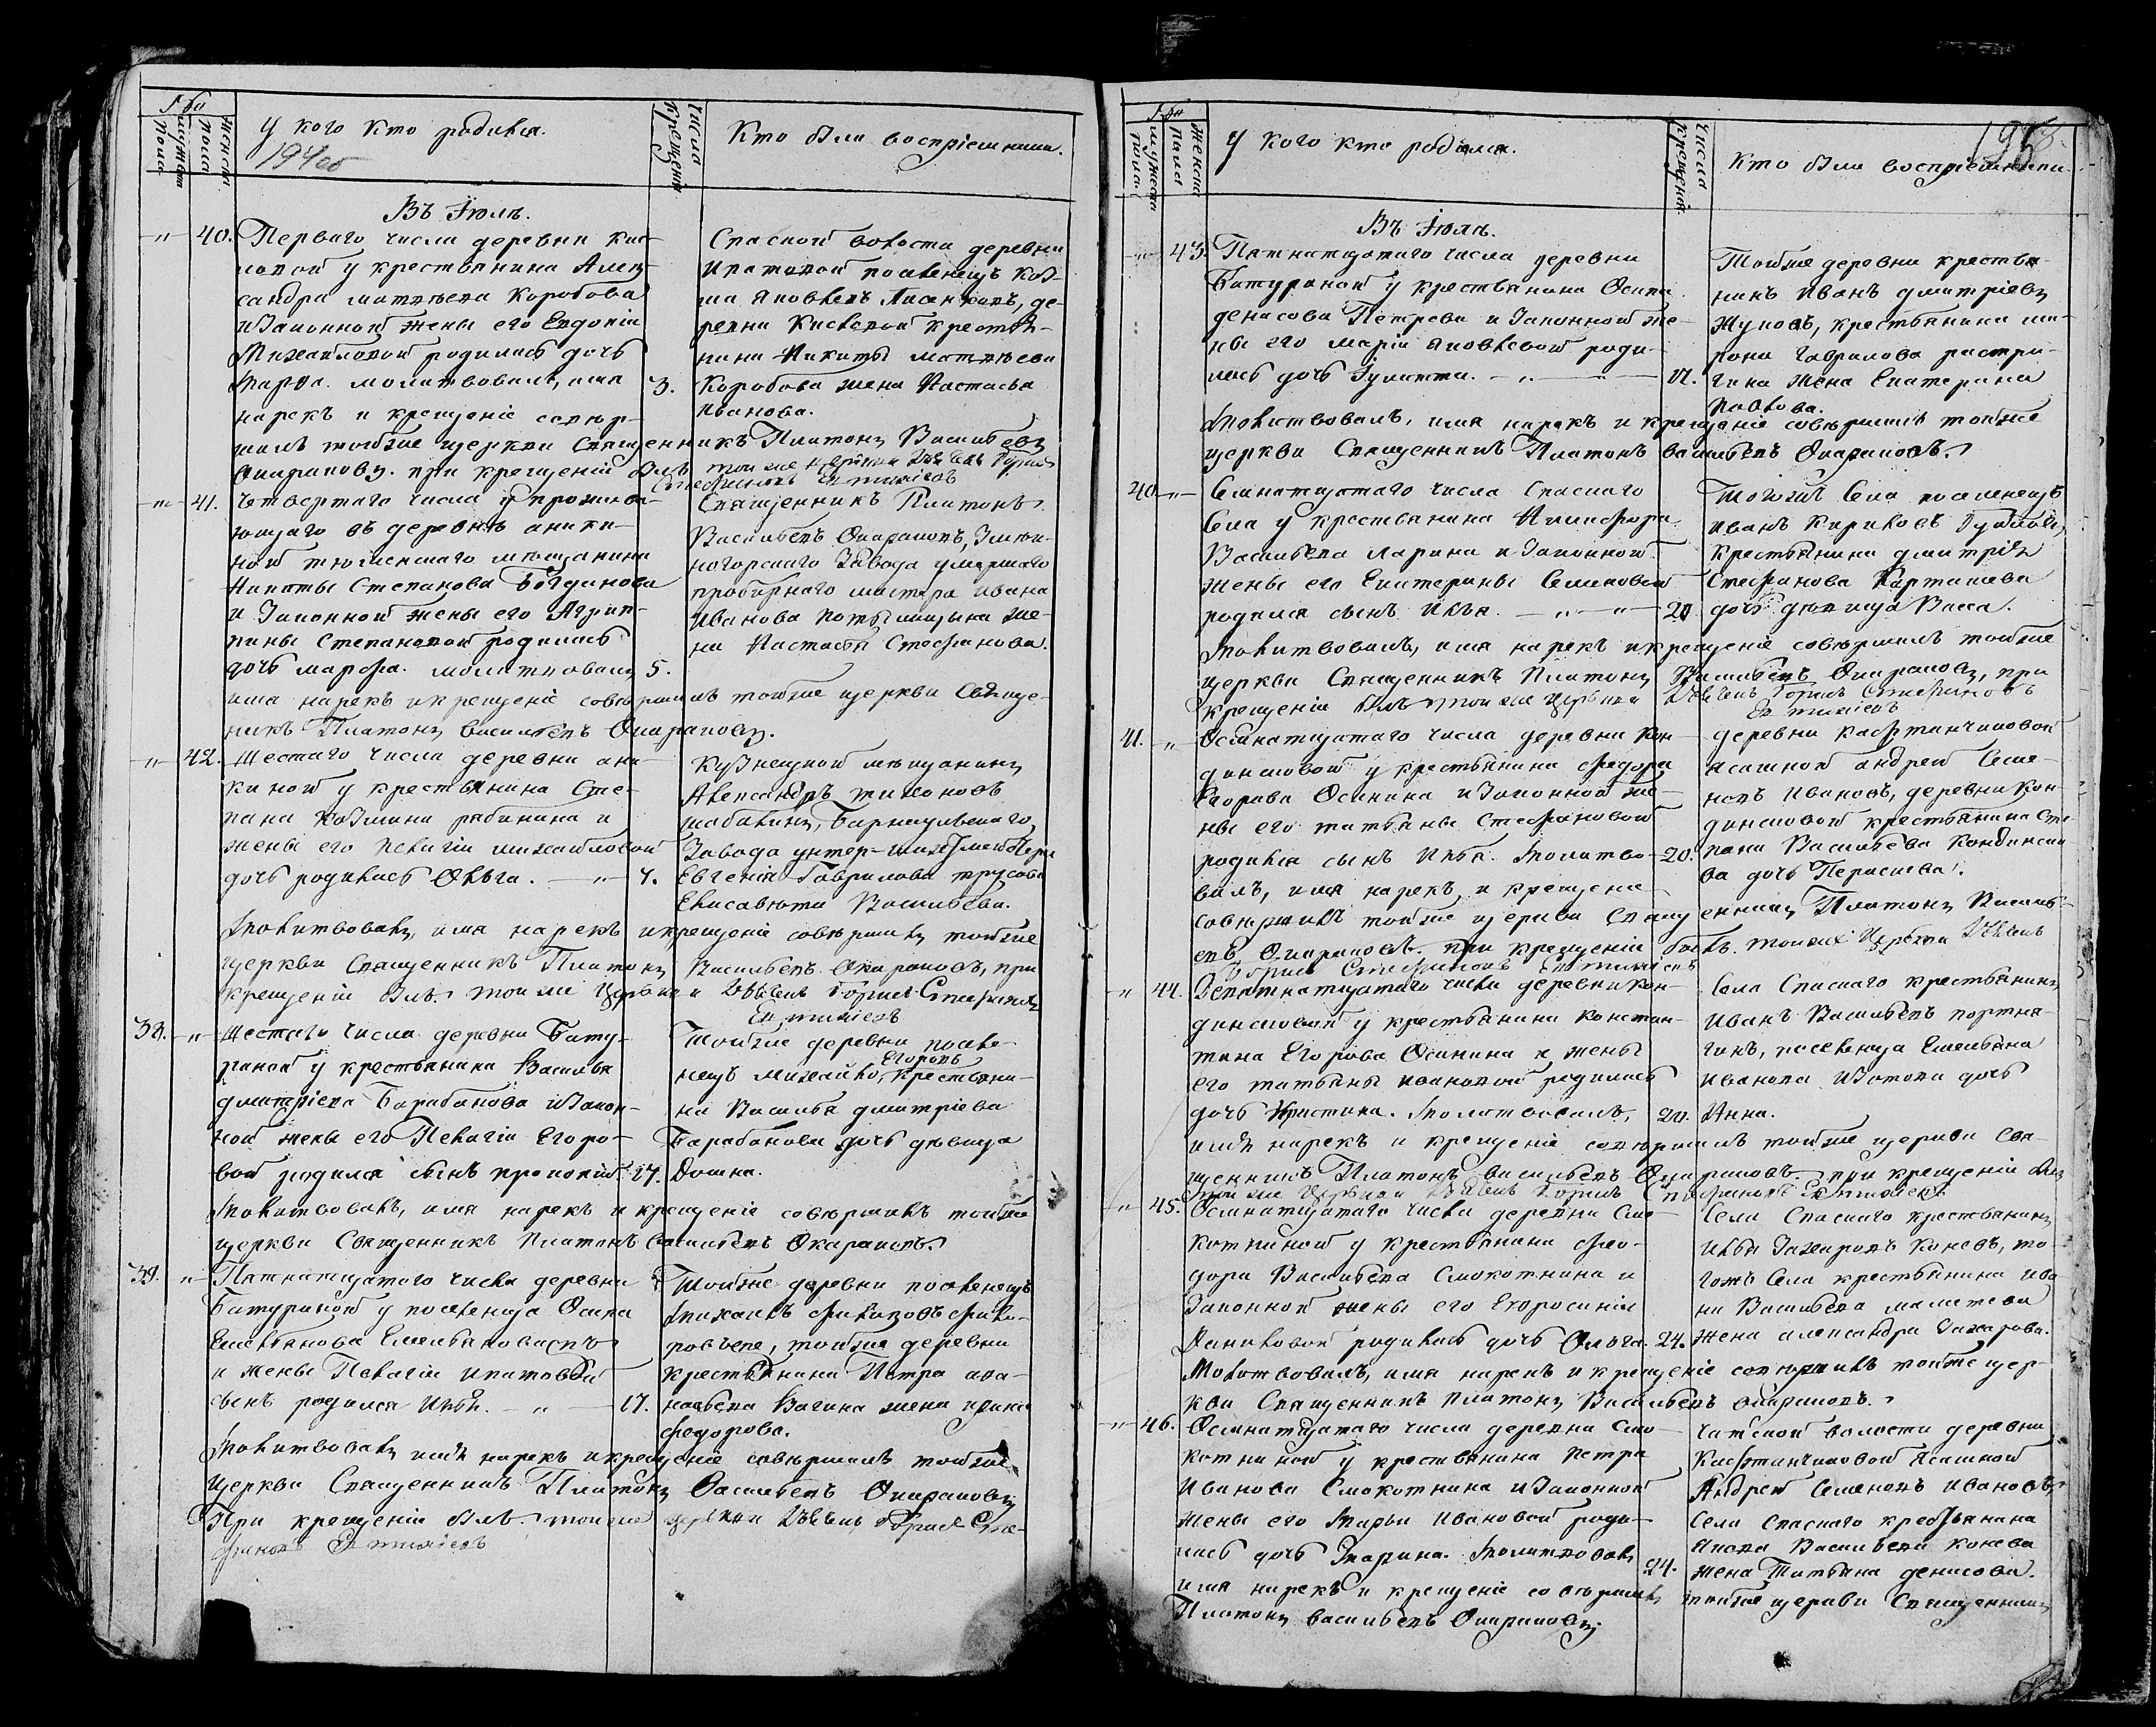 Гбо
мужеска пола
женска пола
У кого кто родился.
194об
Числа крещенія
Кто были воспріемники.
Въ Іюлѣ.
" 40. Перваго числа деревни Кис-
ловой у крестьянина Алек-
сандра Матвѣева Коробова
и законной жены его Евдокіи
Михайловой родилась дочь
Марѳа. молитвовалъ, имя 3.
нарекъ и крещеніе совер-
шилъ тойже церкви Священникъ Платонъ Васильевъ
Окараковъ. при крещеніи былъ той же церкви
Стефановъ
Спаской волости деревни
Ипатовой поселенецъ Коз-
ма Яковлевъ де-
ревни Кисловой крестья-
нина Никиты Матвѣева
Коробова жена Настасья
Иванова.
" 41. Четвертаго числа у прожива-
ющаго въ деревнѣ Аники-
ной тюменскаго мѣщанина
Никиты Степанова Богданова
и законной жены его Агрип-
пины Степановой родилась
дочь Марѳа. молитвовалъ 5.
имя нарекъ и крещеніе совершилъ тойже церкви Священ-
никъ Платонъ Васильевъ Окараковъ.
Священникъ Платонъ
Васильевъ Окараковъ, Змѣи-
ногорскаго завода умершаго
пробирнаго мастера Ивана
Иванова же-
на Настасья Стефанова.
" 42. Шестаго числа деревни Ани-
киной у крестьянина Сте-
пана Козмина Рябинина и
жены его Пелагіи Михайловой
дочь родилась Ольга. — " — 7.
Молитвовалъ, имя нарекъ и крещеніе совершилъ тойже
церкви Священникъ Платонъ Васильевъ Окараковъ, при
крещеніи былъ той же церкви Стефановъ
Кузнецкой мѣщанинъ
Александръ Тихоновъ
Барнаульскаго
завода унтер-шихтмейстера
Евгенія Гаврилова Трусова
Елисавета Васильева.
38. " Шестаго числа деревни Бату-
риной у крестьянина Василья
Дмитріева Барабанова и закон-
ной жены его Пелагіи Егоро-
вой родился сынъ Прокопій. 17.
Молитвовалъ, имя нарекъ и крещеніе совершилъ тойже
церкви Священникъ Платонъ Васильевъ Окараковъ.
Тойже деревни поселе-
нецъ Михайло Егоровъ, крестьяни-
на Василья Дмитріева
Барабанова дочь дѣвица
Домна.
39. " Пятнатцатаго числа деревни
Батуриной у поселенца Осипа
Емельянова
и жены Пелагіи Ипатовой
сынъ родился Илья. — " — 17.
Молитвовалъ имя нарекъ и крещеніе совершилъ тойже
церкви Священникъ Платонъ Васильевъ Окараковъ
При крещеніи былъ тойже церкви Сте-
фановъ
Тойже деревни поселенецъ
Михаилъ
тойже деревни
крестьянина Петра Афа-
насьева Вагина жена Ирина
Федорова.
Гбо
мужеска пола
женска пола
У кого кто родился.
Числа крещенія
Кто были воспріемники.
195
Въ Іюлѣ.
" 43. Пятнатцатаго числа деревни
Батуриной у крестьянина Осипа
Денисова Петрова и законной же-
ны его Маріи Яковлевой роди-
лась дочь Іулитта. — " — 17.
Молитвовалъ, имя нарекъ и крещеніе совершилъ тойже
церкви Священникъ Платонъ Васильевъ Окараковъ.
Тойже деревни крестья-
нинъ Иванъ Дмитріевъ
Жуковъ, крестьянина Ми-
рона Гаврилова Растри-
гина жена Екатерина
Павлова.
40. " Семнатцатаго числа Спаскаго
Села у крестьянина Никифора
Васильева Ларина и законной
жены его Екатерины Семеновой
родился сынъ Илья. — " — 20
Молитвовалъ, имя нарекъ и крещеніе совершилъ тойже
церкви Священникъ Платонъ Васильевъ Окараковъ, при
крещеніи былъ той же церкви Стефановъ
Тогоже Села поселенецъ
Иванъ
крестьянина Дмитрія
Стефанова Карташева
дочь дѣвица Васса.
41. " Осмнатцатаго числа деревни Кон-
динсковой у крестьянина Федора
Егорова Осинина и законной же-
ны его Татьяны Стефановой
родился сынъ Илья. Молитво- 20.
валъ, имя нарекъ, и крещеніе
совершилъ тойже церкви Священникъ Платонъ Василь-
евъ Окараковъ. при крещеніи былъ. тойже церкви
Стефановъ
деревни Кафтанчиковой
ясашной Андрей Семе-
новъ Ивановъ, деревни Кон-
динсковой крестьянина Сте-
пана Васильева Кондинско-
ва дочь Парасковья.
" 44. Осмнатцатаго числа деревни Кон-
динсковой у крестьянина Констан-
тина Егорова Осинина и жены
его Татьяны Ивановой родилась
дочь Христина. Молитвовалъ, 20.
имя нарекъ и крещеніе совершилъ тойже церкви Свя-
щенникъ Платонъ Васильевъ Окараковъ. при крещеніи былъ
той же церкви Стефановъ
Села Спаскаго крестьянинъ
Иванъ Васильевъ Портня-
гинъ, поселенца Емельяна
Иванова Изотова дочь
Анна.
" 45. Осмнатцатаго числа деревни Смо-
котниной у крестьянина Фео-
дора Васильева Смокотнина и
законной жены его Евфросиніи
Даниловой родилась дочь Ольга. 24.
Молитвовалъ, имя нарекъ и крещеніе совершилъ тойже цер-
кви Священникъ Платонъ Васильевъ Окараковъ.
Села Спаскаго крестьянинъ
Илья Захаровъ Коневъ, то-
гожъ Села крестьянина Ива-
на Васильева
жена Александра Захарова.
" 46. Осмнатцатаго числа деревни Смо-
котниной у крестьянина Петра
Иванова Смокотнина и законной
жены его Марьи Ивановой роди-
лась дочь Марина. Молитвовалъ 24.
имя нарекъ и крещеніе совершилъ тойже церкви Священникъ
Платонъ Васильевъ Окараковъ
Чатской волости деревни
Кафтанчиковой ясашной
Андрей Семеновъ Ивановъ,
Села Спаскаго крестьянина
Якова Васильева Конева
жена Татьяна Денисова.